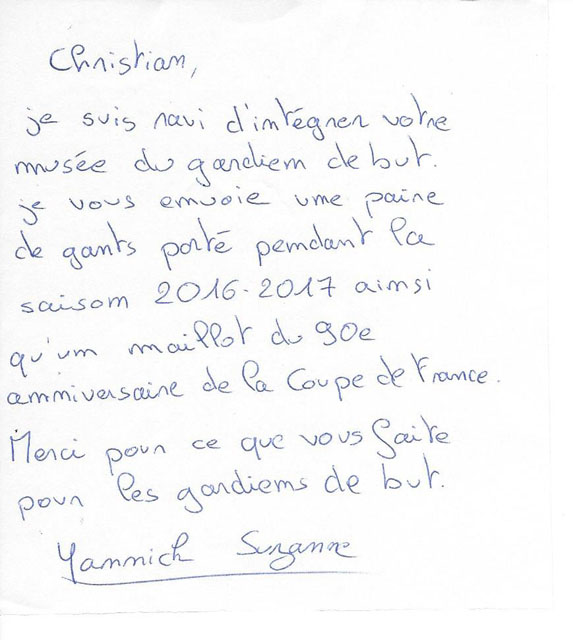 Christian,
je suis ravi d'intégrer votre
musée du gardien de but.
je vous envoie une paire
de gants porté pendant la
saison 2016-2017 ainsi
qu'un maillot du 90e
anniversaire de la Coupe de France.
Merci pour ce que vous faite
pour les gardiens de but.
Yannick Suzanne